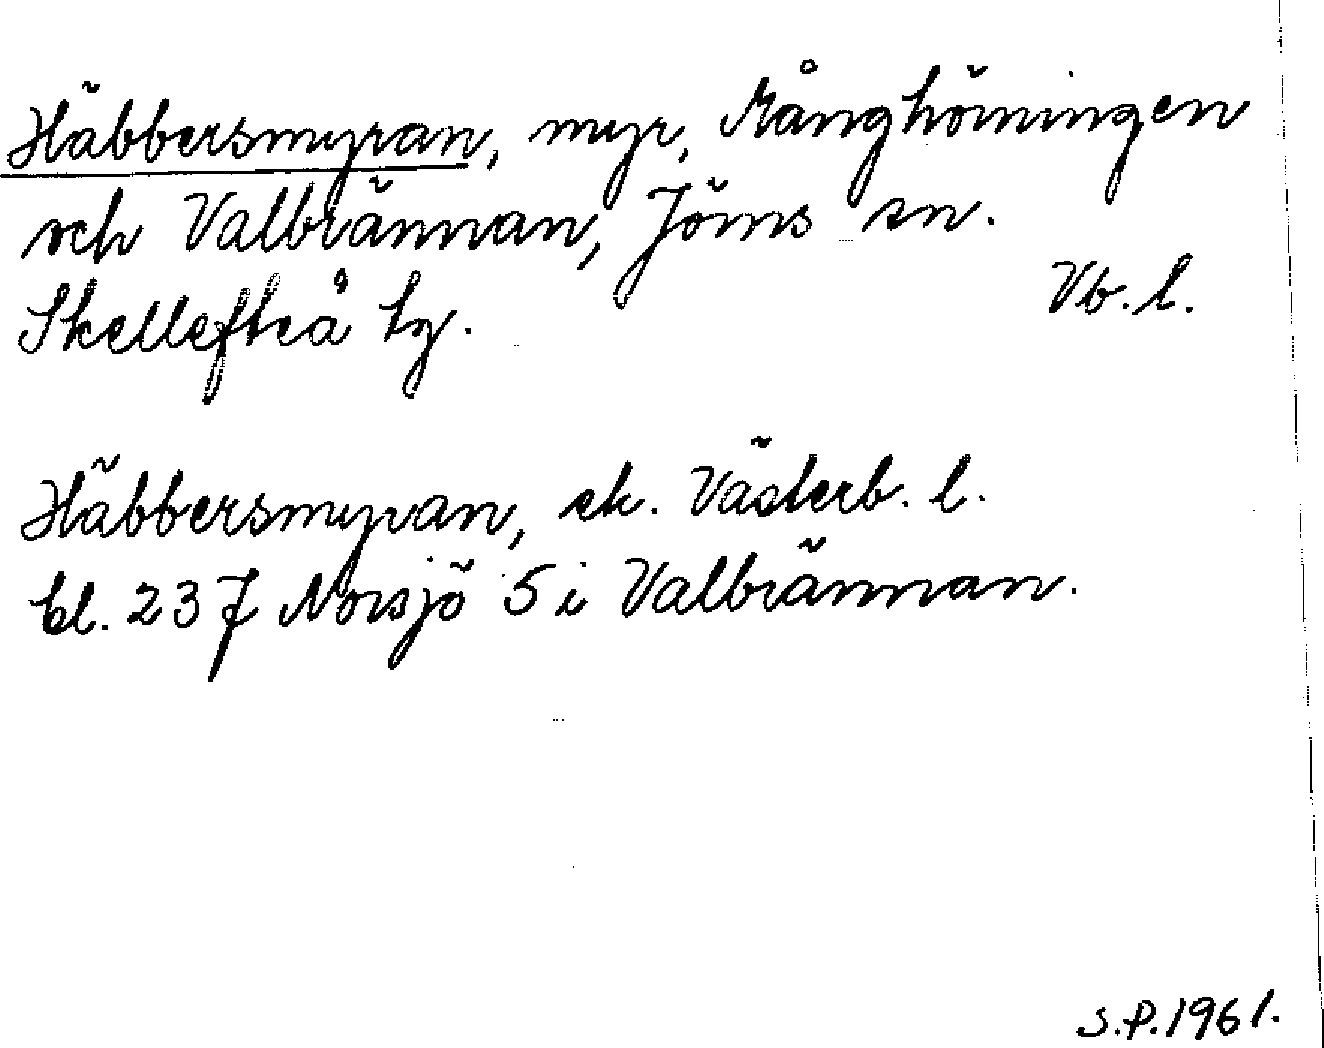 Häbbersmyran, myr, Långhörningen
och Valbrännan, Jörns sn.
Skellefteå tg. Vb. l.
Häbbersmyran, ek. Västerb. l.
bl. 237 Norsjö 5 i Valbrännan.
S.P. 1961.